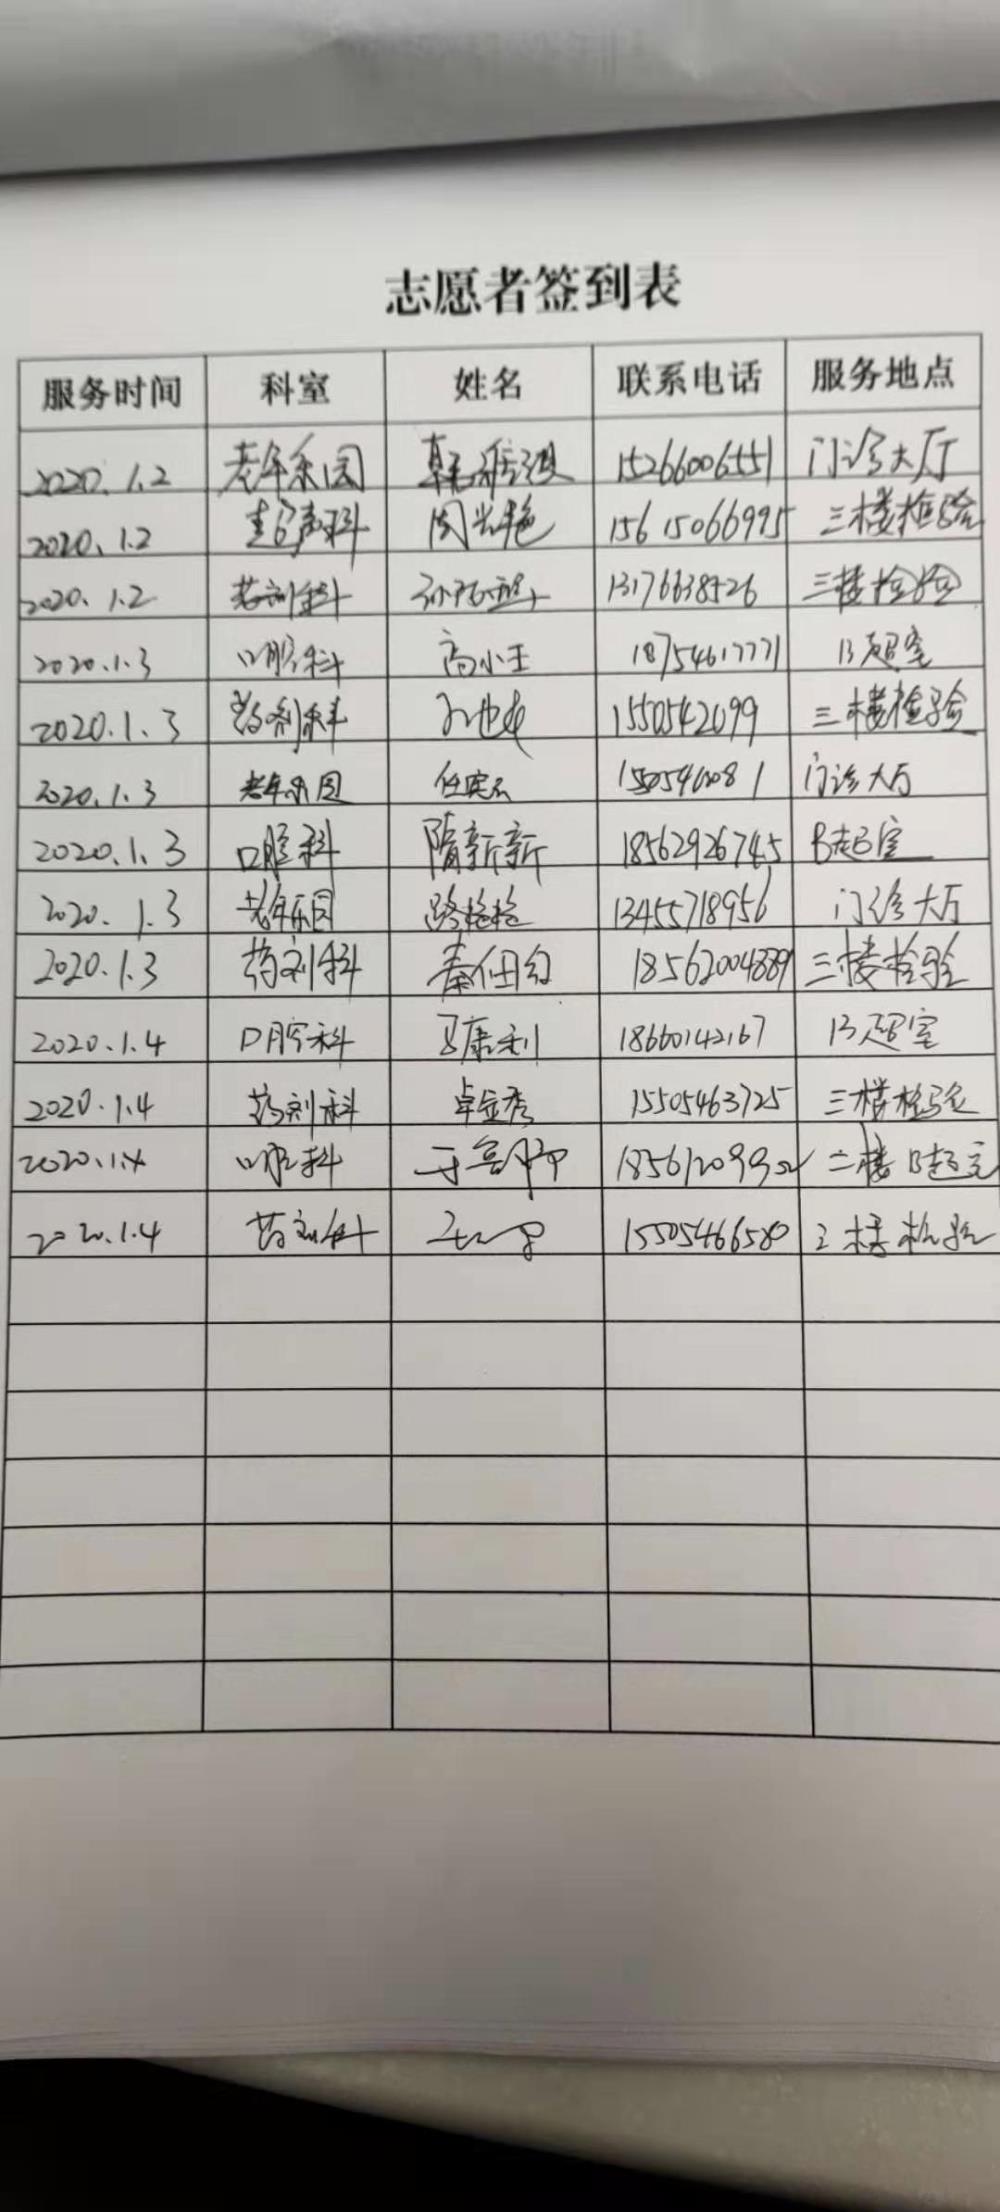 志愿者签到表
服务时间 科室 姓名 联系电话 服务地点
2020.1.2 老年乐园 15266006551 门诊大厅
2020.1.2 超声科 闵兴艳 15615066995 三楼检验
2020.1.2 药剂科 13176638526 三楼检验
2020.1.3 口腔科 高小玉 18754617771 B超室
2020.1.3 药剂科 1550542099 三楼检验
2020.1.3 老年乐园 门诊大厅
2020.1.3 口腔科 隋新新 18562926745 B超室
2020.1.3 老年乐园 路艳艳 13455718956 门诊大厅
2020.1.3 药剂科 18562004889 三楼检验
2020.1.4 口腔科 马康利 18660142167 B超室
2020.1.4 药剂科 卓金秀 15505463725 三楼检验
2020.1.4 口腔科 二楼B超室
2020.1.4 药剂科 15505466580 2楼检验